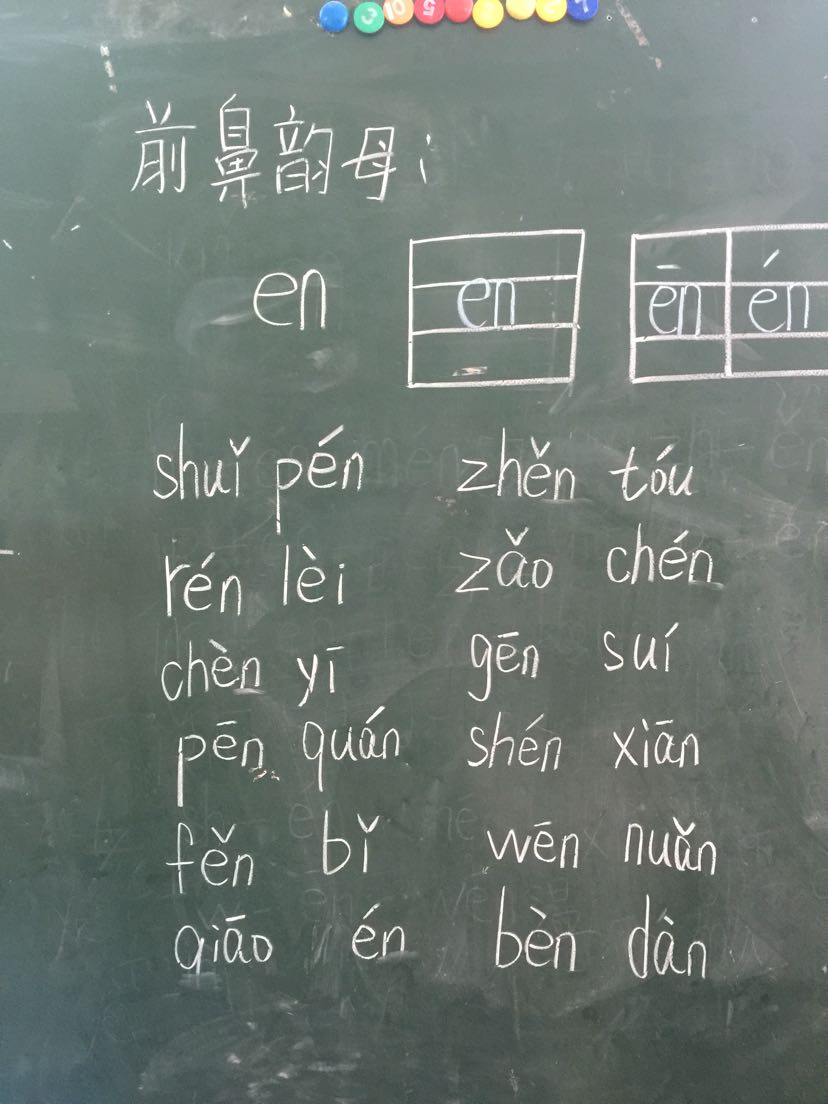 前鼻韵母：
en en ēn én
shuǐ pén zhěn tóu
rén lèi zǎo chén
chèn yī gēn suí
pēn quán shén xiān
fěn bǐ wēn nuǎn
qiāo én bèn dàn